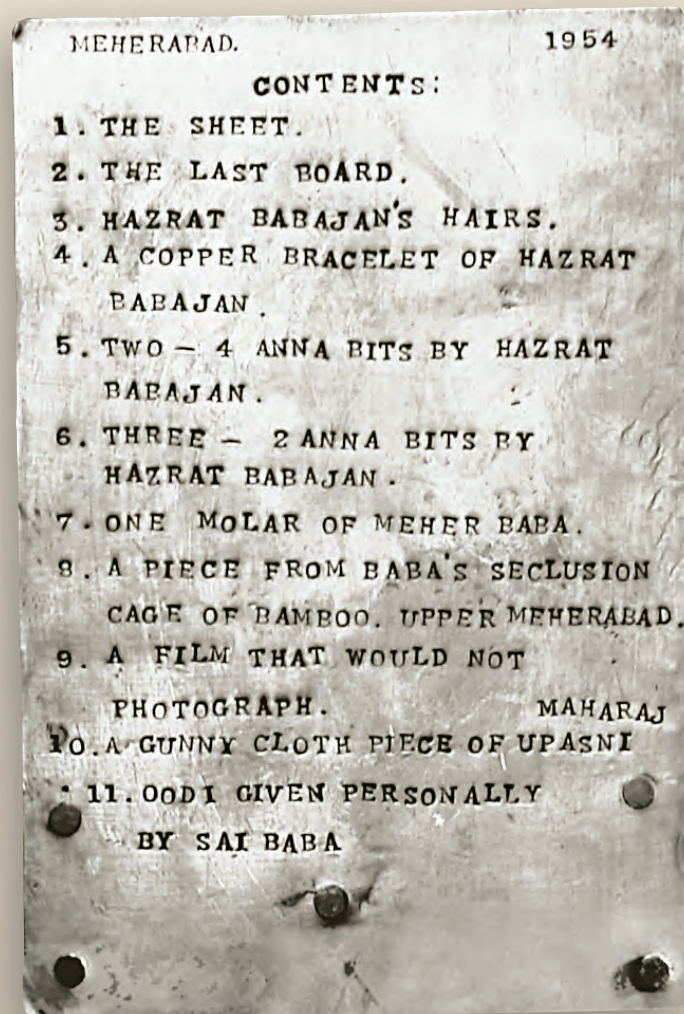 MEHERABAD. 1954
CONTENTS:
1. THE SHEET.
2. THE LAST BOARD.
3. HAZRAT BABAJAN'S HAIRS.
4. A COPPER BRACELET OF HAZRAT
BABAJAN.
5. TWO – 4 ANNA BITS BY HAZRAT
BABAJAN.
6. THREE – 2 ANNA BITS BY
HAZRAT BABAJAN.
7. ONE MOLAR OF MEHER BABA.
8. A PIECE FROM BABA'S SECLUSION
CAGE OF BAMBOO. UPPER MEHERABAD.
9. A FILM THAT WOULD NOT
PHOTOGRAPH. MAHARAJ
10. A GUNNY CLOTH PIECE OF UPASNI
11. OODI GIVEN PERSONALLY
BY SAI BABA